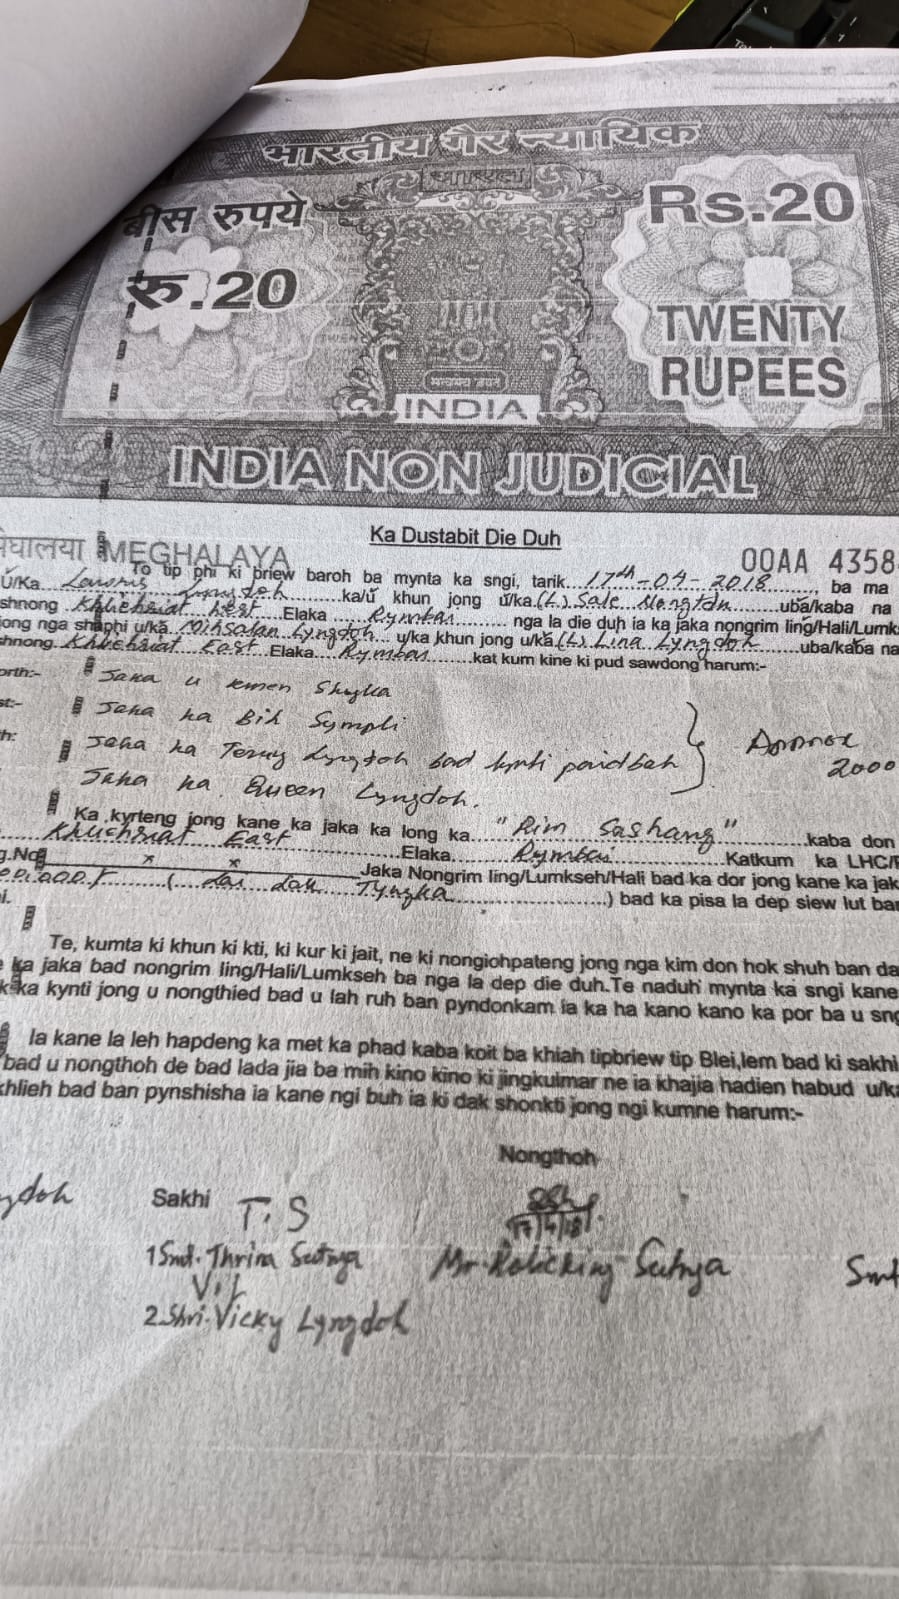 भारतीय गैर न्यायिक
भारत
बीस रुपये
Rs.20
रु.20
TWENTY
RUPEES
सत्यमेव जयते
INDIA
INDIA NON JUDICIAL
Ka Dustabit Die Duh
मेघालया MEGHALAYA
00AA 4358
To tip phi ki briew baroh ba mynta ka sngi, tarik 17th-04-2018, ba ma
U/Ka Lyngdoh ka/u khun jong u/ka (L) Sale Nongtdu uba/kaba na
shnong Khliehriat West Elaka Rymbai nga la die duh ia ka jaka nongrim ling/Hali/Lumk
jong nga shaphi u/ka Mihsalan Lyngdoh u/ka khun jong u/ka (L) Lina Lyngdoh uba/kaba na
shnong Khliehriat East Elaka Rymbai kat kum kine ki pud sawdong harum:-
orth:- Jaka u Shylla
st:- Jaka ka Bih Sympli
h: Jaka ka Lyngdoh bad kynti paidbah
Jaka ka Queen Lyngdoh.
Approx
2000
Ka kyrteng jong kane ka jaka ka long ka "Rim Sashang" kaba don
Khliehriat East Elaka Rymbai Katkum ka LHC/
g.No x x Jaka Nongrim ling/Lumkseh/Hali bad ka dor jong kane ka jak
Tyngka) bad ka pisa la dep siew lut ba
i.
Te, kumta ki khun ki kti, ki kur ki jait, ne ki nongiohpateng jong nga kim don hok shuh ban da
ka jaka bad nongrim ling/Hali/Lumkseh ba nga la dep die duh.Te naduh mynta ka sngi kane
ka kynti jong u nongthied bad u lah ruh ban pyndonkam ia ka ha kano kano ka por ba u sng
Ia kane la leh hapdeng ka met ka phad kaba koit ba khiah tipbriew tip Blei,lem bad ki sakhi
bad u nongthoh de bad lada jia ba mih kino kino ki jingkulmar ne ia khajia hadien habud u/ka
khlieh bad ban pynshisha ia kane ngi buh ia ki dak shonkti jong ngi kumne harum:-
Nongthoh
gdoh
Sakhi T.S
17/4/18
1 Smt. Thrina Sutnga
Mr. Sutnga
Smt
2.Shri. Vicky Lyngdoh